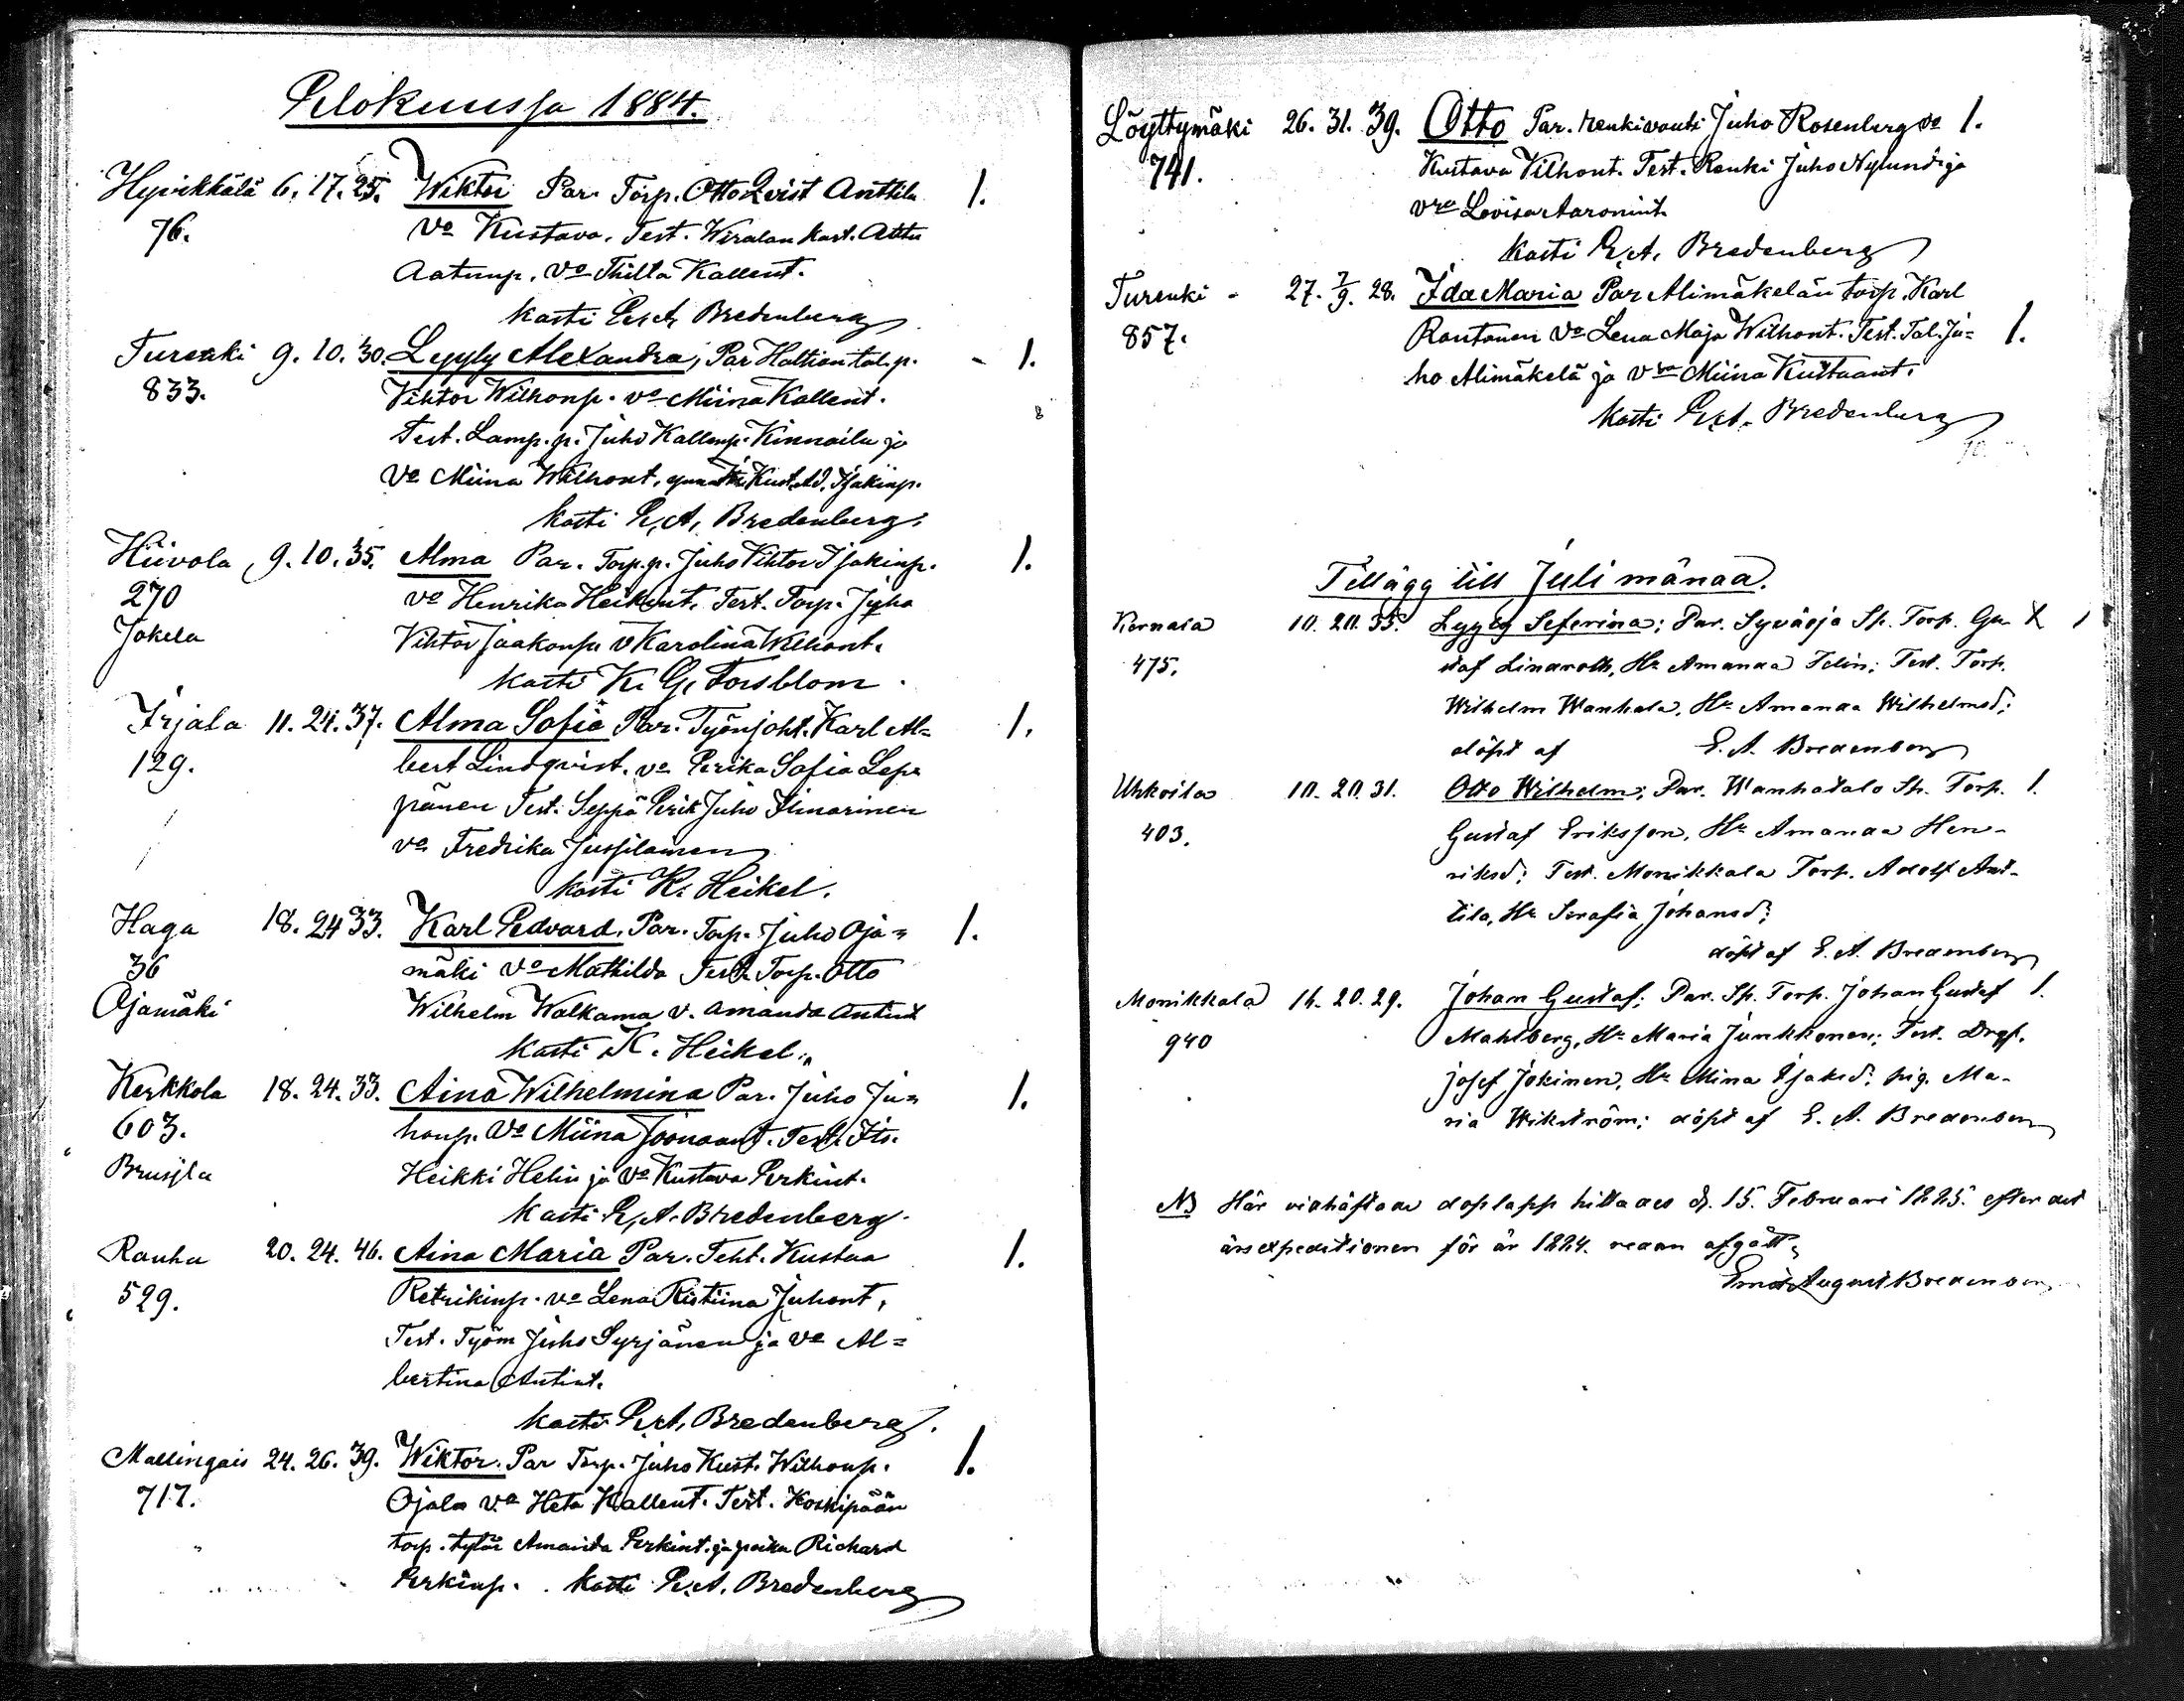 Elokuussa 1884.
Hyvikkälä 6. 17. 25. Wiktor Par. Torp. Otto Qvist Anttila 1.
76. Va Kustava. Test. Wiralan kart. Attu
Aatunp. Va Thilta Kallent.
kasti E. A. Bredenberg
Turenki 9. 10. 30. Lyyly Alexandra, Par Haltian tal. p. - 1.
833. Vihtor Wilhonp. va Miina Kallent.
Test. Lamp. p. Juho Kallenp. Kinnaila ja
Va Miina Wilhont, Kust. Ad. Isakinp.
kasti E. A. Bredenberg.
Hiivola 9. 10. 35. Alma Par. Torp. p. Juho Vihtor Isakinp. 1.
270 va Henrika Heikint. Test. Torp. Juho
Jokela Vihtor Jaakonp. v Karolina Wilhont.
kasti K. G. Forsblom.
Irjala 11. 24. 37. Alma Sofia Par. Työnjoht. Karl Al= 1.
129. bert Lindqvist. va Eerika Sofia Lep=
pänen Test. Seppä Eerik Juho Ilmarinen
va Fredrika Jussilainen
kasti K. Heikel.
Haga 18. 24 33. Karl Edvard. Par. Torp. Juho Oja= 1.
36 mäki va Mathilda Test. Torp. Otto
Ojamäki Wilhelm Walkama v. Amanda Antint
kasti K. Heikel.
Kerkkola 18. 24. 33. Aina Wilhelmina Par. Juho Ju= 1.
603. honp. Va Miina Joonaant. Test. Its.
Brusila Heikki Helin ja Va Kustava Erkint.
kasti E. A. Bredenberg.
Rauhu 20. 24. 46. Aina Maria Par. Teht. Kustaa 1.
529. Retrikinp. va Lena Ristiina Juhont,
Test. Työm Juho Syrjänen ja va Al=
bertina Antint.
kasti E. A. Bredenberg.
Mallingais 24. 26. 39. Wiktor. Par Torp. Juho Kust. Wilhonp. 1.
717. Ojala va Heta Kallent. Test. Koskipään
torp. tytär Amanda Erkint. ja poika Richard
Erkinp. kasti E. A. Bredenberg
Löyttymäki 26. 31. 39. Otto Par. renkivouti Juho Rosenberg va 1.
741. Kustava Vilhont. Test. Renki Juho Nylund ja
vra Lovisa Aaronint.
kasti E. A. Bredenberg
Turenki - 27. 7/9. 28. Ida Maria Par Alimäkelän torp. Karl
857. Rantanen Va Lena Maja Wilhont. Test. Tal. Ju= 1.
ho Alimäkelä ja Vra Miina Kustaant.
kasti E. A. Bredenberg
Tillägg till Juli månad.
Kernala 10. 20. 35. Lyyly Seferina; Par. Syväoja Sp. Torp. Gu- X 1
475. staf Lindroth, Hu Amanda Idin; Test. Torp.
Wilhelm Wanhala, Hu Amanda Wilhelmsd;
döpt af E. A. Bredenberg
Uhkoila 10. 20. 31. Otto Wilhelm; Par. Wanhatalo Sp. Torp. 1.
403. Gustaf Eriksson, Hu Amanda Hen-
riksd; Test. Monikkala Torp. Adolf Ant-
tila, Hu Serafia Johansd;
döpt af E. A. Bredenberg
Monikkala 14. 20. 29. Johan Gustaf; Par. Sp. Torp. Johan Gustaf 1.
940 Mahlberg, Hu Maria Junkkonen; Test. Drgs.
Josef Jokinen, Hu Mina Isaksd; pig. Ma-
ria Wikström; döpt af E. A. Bredenberg
NB Här vidhäftade doplapp hittades d. 15. Februari 1885. efter det
årsexpeditionen för år 1884. redan afgått.
Ernst August Bredenberg